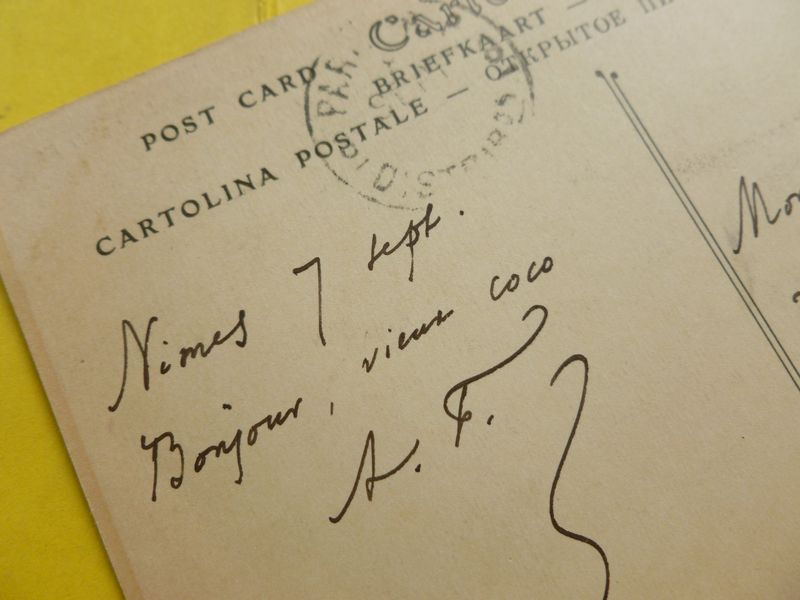 POST CARD
BRIEFKAART —
CARTOLINA POSTALE — ОТКРЫТОЕ
PAR
DISTRIB
Nimes 7 sept.
Bonjour, vieux coco
A. F.